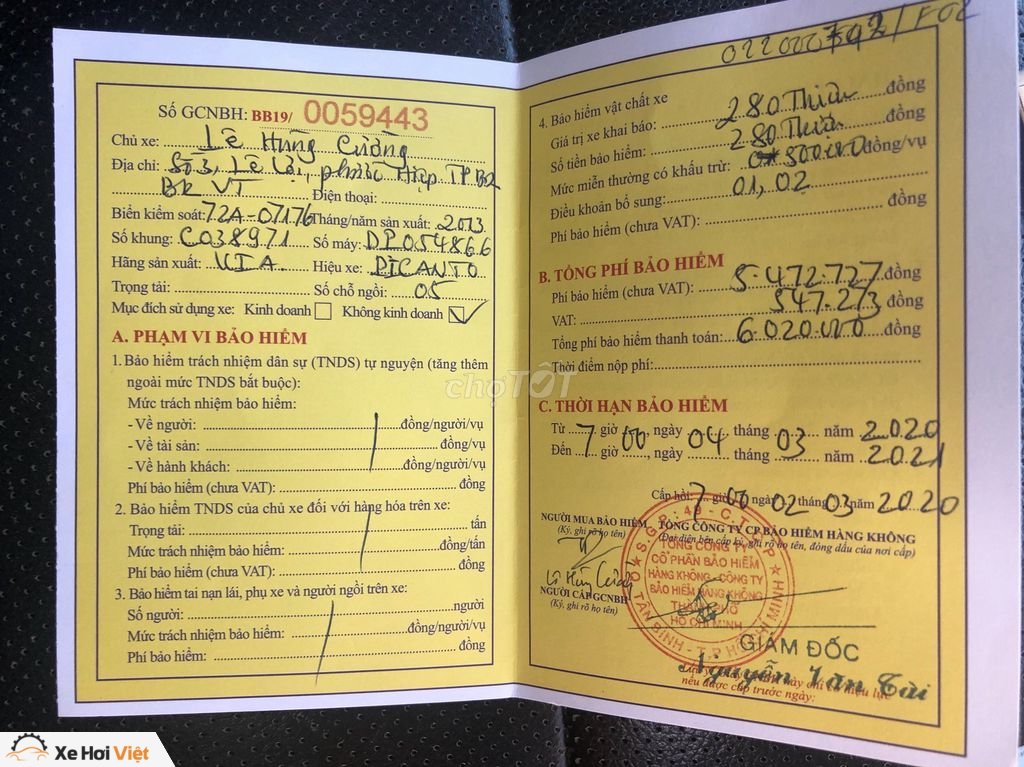 Số GCNBH: BB19/ 0059443
Chủ xe: Lê Hùng Cường
Địa chỉ: Số 3, Lê Lợi, phước Hiệp TP BR
BR VT Điện thoại:
Biển kiểm soát: 72A-07176 Tháng/năm sản xuất: 2013
Số khung: C038971 Số máy: DP054866
Hãng sản xuất: KIA Hiệu xe: PICANTO
Trọng tải: Số chỗ ngồi: 05
Mục đích sử dụng xe: Kinh doanh Không kinh doanh
A. PHẠM VI BẢO HIỂM
1. Bảo hiểm trách nhiệm dân sự (TNDS) tự nguyện (tăng thêm
ngoài mức TNDS bắt buộc):
Mức trách nhiệm bảo hiểm:
- Về người: đồng/người/vụ
- Về tài sản: đồng/vụ
- Về hành khách: đồng/người/vụ
Phí bảo hiểm (chưa VAT): đồng
2. Bảo hiểm TNDS của chủ xe đối với hàng hóa trên xe:
Trọng tải: tấn
Mức trách nhiệm bảo hiểm: đồng/tấn
Phí bảo hiểm (chưa VAT): đồng
3. Bảo hiểm tai nạn lái, phụ xe và người ngồi trên xe:
Số người: người
Mức trách nhiệm bảo hiểm: đồng/người/vụ
Phí bảo hiểm: đồng
4. Bảo hiểm vật chất xe
Giá trị xe khai báo: 280 Triệu đồng
Số tiền bảo hiểm: 280 Triệu đồng
Mức miễn thường có khấu trừ: 500.000 đồng/vụ
Điều khoản bổ sung: 01, 02
Phí bảo hiểm (chưa VAT): đồng
B. TỔNG PHÍ BẢO HIỂM
Phí bảo hiểm (chưa VAT): 5.472.727 đồng
VAT: 547.273 đồng
Tổng phí bảo hiểm thanh toán: 6.020.000 đồng
Thời điểm nộp phí:
C. THỜI HẠN BẢO HIỂM
Từ 7 giờ 00, ngày 04 tháng 03 năm 2020
Đến giờ, ngày tháng 03 năm 2021
Cấp hồi: 7 giờ 00 ngày 02 tháng 03 năm 2020
NGƯỜI MUA BẢO HIỂM TỔNG CÔNG TY CP BẢO HIỂM HÀNG KHÔNG
(Ký, ghi rõ họ tên) (Đại diện bên cấp ký, ghi rõ họ tên, đóng dấu của nơi cấp)
Lê Hùng Cường
NGƯỜI CẤP GCNBH
(Ký, ghi rõ họ tên)
TỔNG CÔNG TY
CỔ PHẦN BẢO HIỂM
HÀNG KHÔNG - CÔNG TY
BẢO HIỂM HÀNG KHÔNG
THÀNH PHỐ
HỒ CHÍ MINH
GIÁM ĐỐC
Nguyễn Văn Tài
nếu được cấp trước ngày:
chợTỐT
Xe Hơi Việt